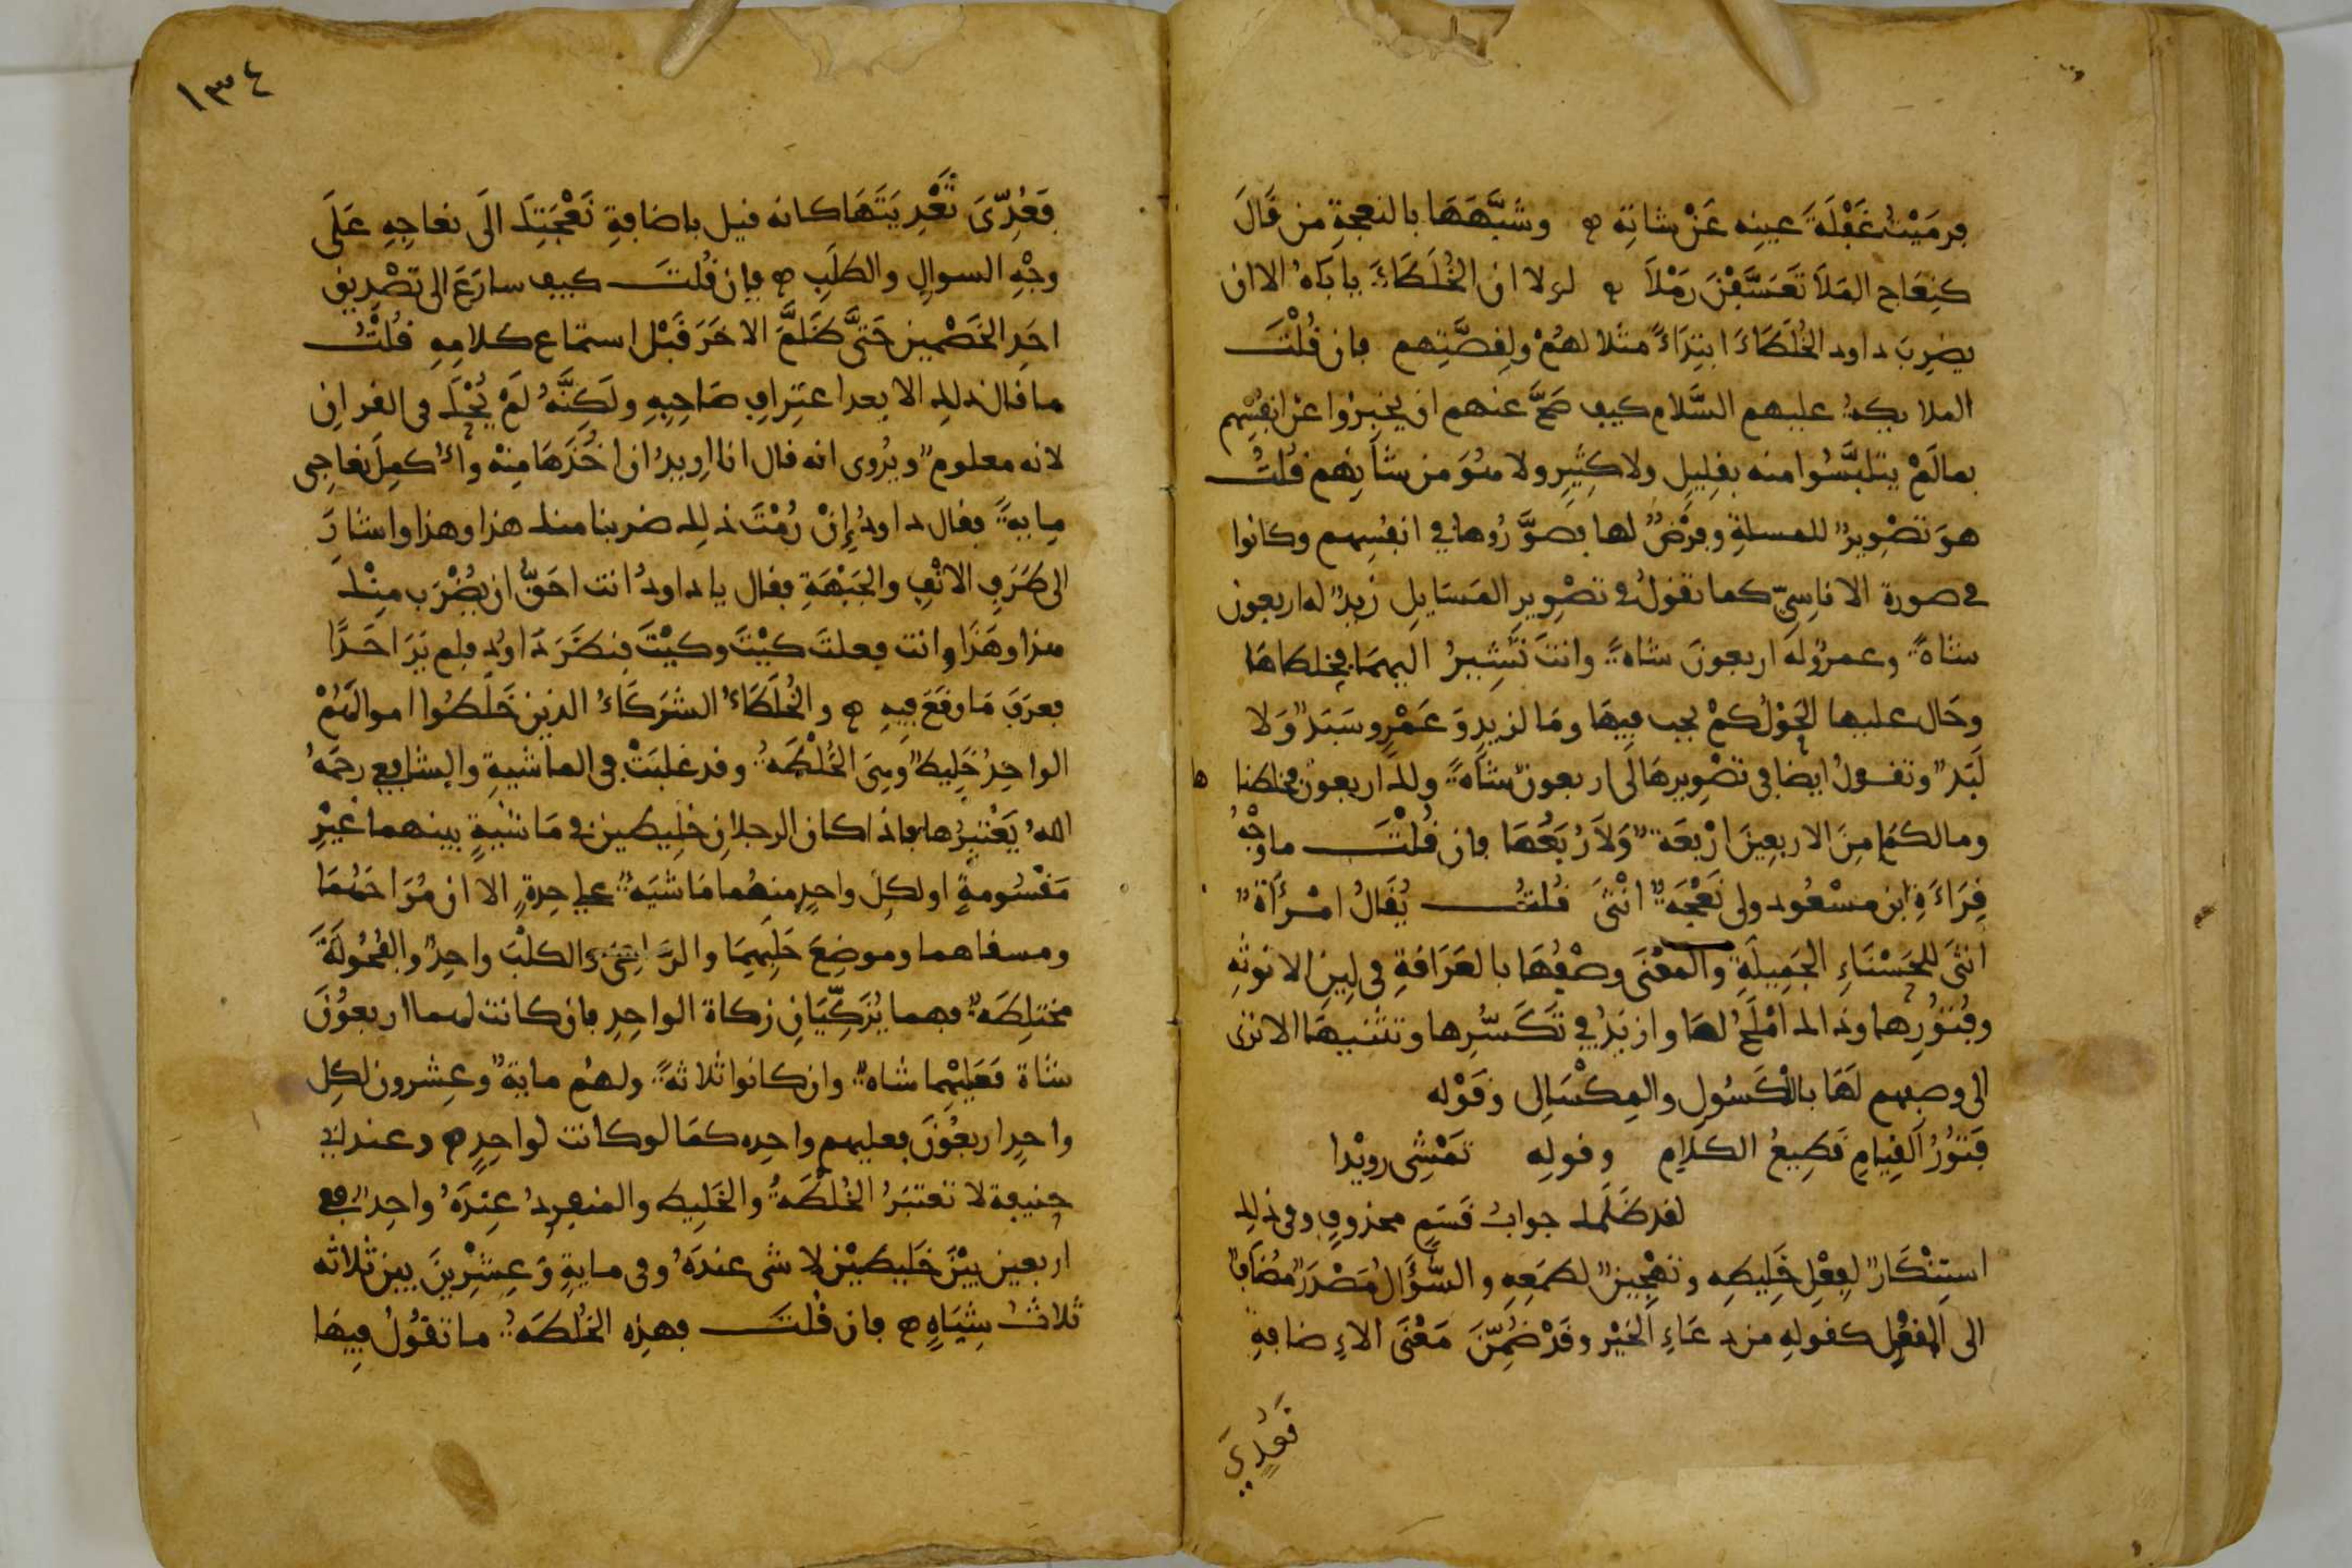 فرميت غفلة عينه عن شاته وشبهها بالنعجة من قال
كنعاج الملا تعسفن رملا لولا ان الخلطاء ياباه الا ان
يضرب داود الخلطاء ابتداءً مثلا لهم ولقصتهم فان قُلْتَ
الملايكة عليهم السَّلام كيف صحَّ عنهم ان يخبروا عن انفسهم
بما لَمْ يتلبَّسُوا منه بقليل ولا كثيرٍ ولا هُوَ من شأنهم قُلتُ
هو تصويرٌ للمسلة وفرضٌ لها فصوَّرُوها في انفسِهم وكانوا
في صورة الاناسيّ كما تقولُ في تصوير المسايل زيدٌ له اربعون
شاةً وعمروٌ له اربعونَ شاةً وانتَ تُشِيرُ اليهما فخلطاها
وحال عليها الحَوْلُ كمْ يجب فيها وما لزيدٍ وعَمْرٍو سَبَدٌ ولا
لَبَدٌ وتقولُ ايضا في تصويرها لى اربعون شاةً ولك اربعون فخلطنا
ها
ومالكما مِنَ الاربعين ارْبعَةٌ ولا رُبَعُها فان قُلْتَ ما وجْهُ
قِرَاءَةِ ابن مسْعُود ولى نَعْجَةٌ انْثَى قُلتُ يُقالُ امْرأةٌ
انثى للحَسْنَاءِ الجميلَةِ والمعْنَى وصْفُها بالعَرَاقةِ في لِينِ الانوثه
وفُتُورِها وذالك امْلَحُ لها وازيَدُ في تكَسُّرِها وتثنيها الا ترى
الى وصفهم لَهَا بالكَسُولِ والمِكْسَالِ وقَوْله
فَتُورُ القِيامِ قَطِيعُ الكلامِ وقولِه تَمْشِى رويْدا
لقد ظَلَمك جوابُ قَسَمٍ محذوفٍ وفى ذلك
استِنْكارٌ لِفِعْلِ خَلِيطِه وتَهْجِينٌ لطمَعِهِ والسُّؤَالُ مَصْدَرٌ مُضَافٌ
الى المفعُولِ كقولهِ من دعاءِ الخَيْرِ وقدْ ضُمِّنَ مَعْنَى الاءِضافةِ
فَعُدِّيَ
١٣٤
فعُدِّىَ تَعْدِيَتَهَا كانه قيل باضافةِ نَعْجَتِك الَى نعاجِهِ عَلَى
وجْهِ السوالِ والطلَبِ فإن قُلتَ كيف سارَعَ الى تصْدِيق
احَدِ الخَصْمين حَتَّى ظَلَّمَ الاخَرَ قَبْل استماع كلامِهِ قُلْتُ
ما قال ذلك الا بعد اعتِرافِ صَاحِبِهِ ولَكِنَّهُ لَمْ يُحْكَ في القرانِ
لانه معلومٌ ويُروى انه قال انا اريدُ ان اخُذَهَا مِنْه واُكمِلَ نعاجِى
مايةً فقال داودُ إِنْ رُمْتَ ذلك ضربنا منك هذا وهذا واشارَ
الى طَرَفِ الانْفِ والجَبْهَةِ فقال يا داودُ انت احَقُّ ان يُضْرَب مِنْكَ
هذا وهَذَا وانت فعلتَ كيْتَ وكيْتَ فنظَرَ دَاوُد فلم يَرَ احَدًا
فعرفَ مَا وقَعَ فِيهِ والخُلَطَاءُ الشرَكَاءُ الذين خَلَطُوا اموالَهُمْ
الواحِدُ خَلِيطٌ وَهِىَ الخُلْطَةُ وقد غلبَتْ في الماشيةِ والشافعى رحمَهُ
اللهُ يَعْتَبِرُها فاذا كان الرجلانِ خلِيطين في مَاشيةٍ بينهما غيْرِ
مَقْسُومةٍ او لكِلِّ واحدٍ منهُما مَاشيَةٌ على حِدةٍ الا ان مُرَاحَهُمَا
ومسقاهما وموضِعَ حَلَبِهِما والرَّاعِىَ والكلْبَ واحِدٌ والفُحُولَةَ
مختلِطَةٌ فهما يُزَكِّيَانِ زكاة الواحِدِ فان كانت لهما اربعُونَ
شاة فَعَلَيْهِما شاةٌ وان كانوا ثلاثةً ولهُم مايةٌ وعِشرون لكِلِ
واحِدٍ اربعُونَ فعليهم واحِده كما لو كانت لواحِدٍ وعند ابى
حنيفة لا تعتبَرُ الخُلطةُ والخَلِيط والمنفرِدُ عِنْدَهُ واحِدٌ ففى
اربعين بيْنَ خَلِيطَيْن لا شى عندَهُ وفى مايةٍ وعِشْرِينَ بين ثلاثه
ثلاثُ شِيَاهٍ فان قُلتَ فهذِه الخُلطَةُ ما تقوُلُ فِيهَا